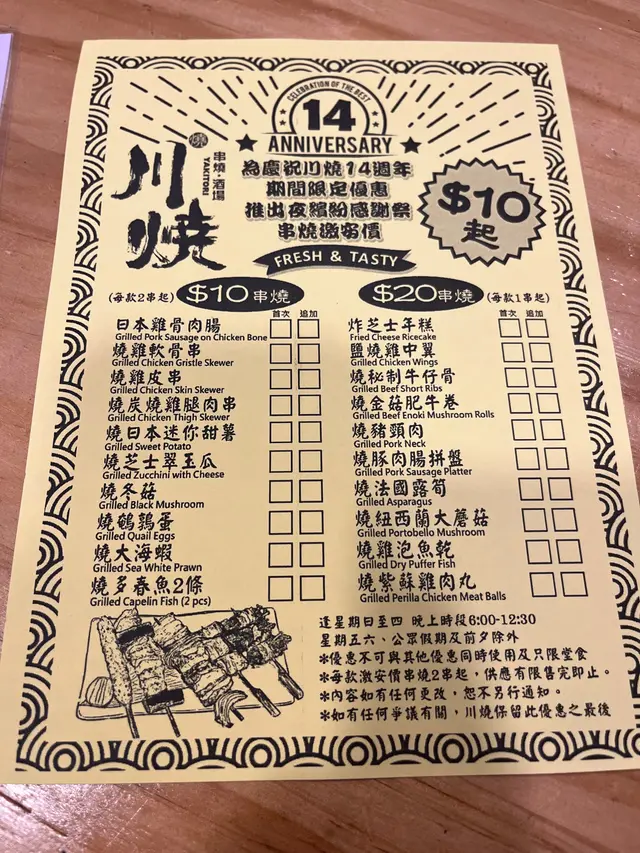 CELEBRATION OF THE BEST
14
ANNIVERSARY
川燒
串燒·酒場
YAKITORI
為慶祝川燒14週年
期間限定優惠
推出夜繽紛感謝祭
串燒激安價
$10
起
FRESH & TASTY
(每款2串起) $10串燒
首次 追加
日本雞骨肉腸
Grilled Pork Sausage on Chicken Bone
燒雞軟骨串
Grilled Chicken Gristle Skewer
燒雞皮串
Grilled Chicken Skin Skewer
燒炭燒雞腿肉串
Grilled Chicken Thigh Skewer
燒日本迷你甜薯
Grilled Sweet Potato
燒芝士翠玉瓜
Grilled Zucchini with Cheese
燒冬菇
Grilled Black Mushroom
燒鵪鶉蛋
Grilled Quail Eggs
燒大海蝦
Grilled Sea White Prawn
燒多春魚2條
Grilled Capelin Fish (2 pcs)
$20串燒 (每款1串起)
首次 追加
炸芝士年糕
Fried Cheese Ricecake
鹽燒雞中翼
Grilled Chicken Wings
燒秘制牛仔骨
Grilled Beef Short Ribs
燒金菇肥牛卷
Grilled Beef Enoki Mushroom Rolls
燒豬頸肉
Grilled Pork Neck
燒豚肉腸拼盤
Grilled Pork Sausage Platter
燒法國露筍
Grilled Asparagus
燒紐西蘭大蘑菇
Grilled Portobello Mushroom
燒雞泡魚乾
Grilled Dry Puffer Fish
燒紫蘇雞肉丸
Grilled Perilla Chicken Meat Balls
逢星期日至四 晚上時段6:00-12:30
星期五六、公眾假期及前夕除外
*優惠不可與其他優惠同時使用及只限堂食
*每款激安價串燒2串起，供應有限售完即止。
*內容如有任何更改，恕不另行通知。
*如有任何爭議有關，川燒保留此優惠之最後